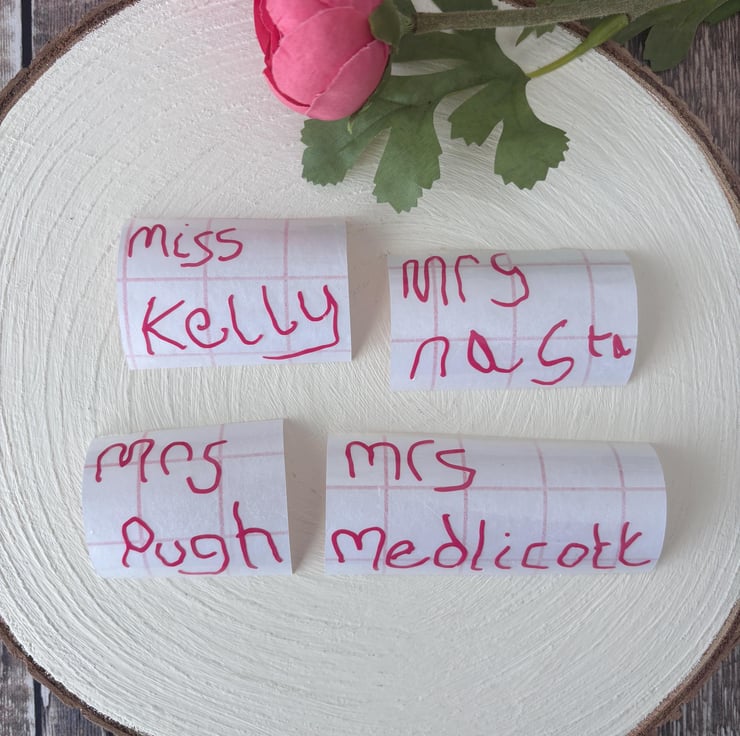 Miss
Kelly
Mrs
nasta
Mrs
Pugh
Mrs
Medlicott